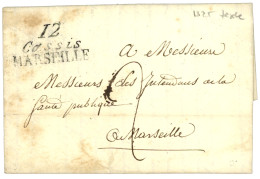 12
Cassis
MARSEILLE
A Messieurs
Messieurs les Intendans de la
Santé publique
2
à Marseille